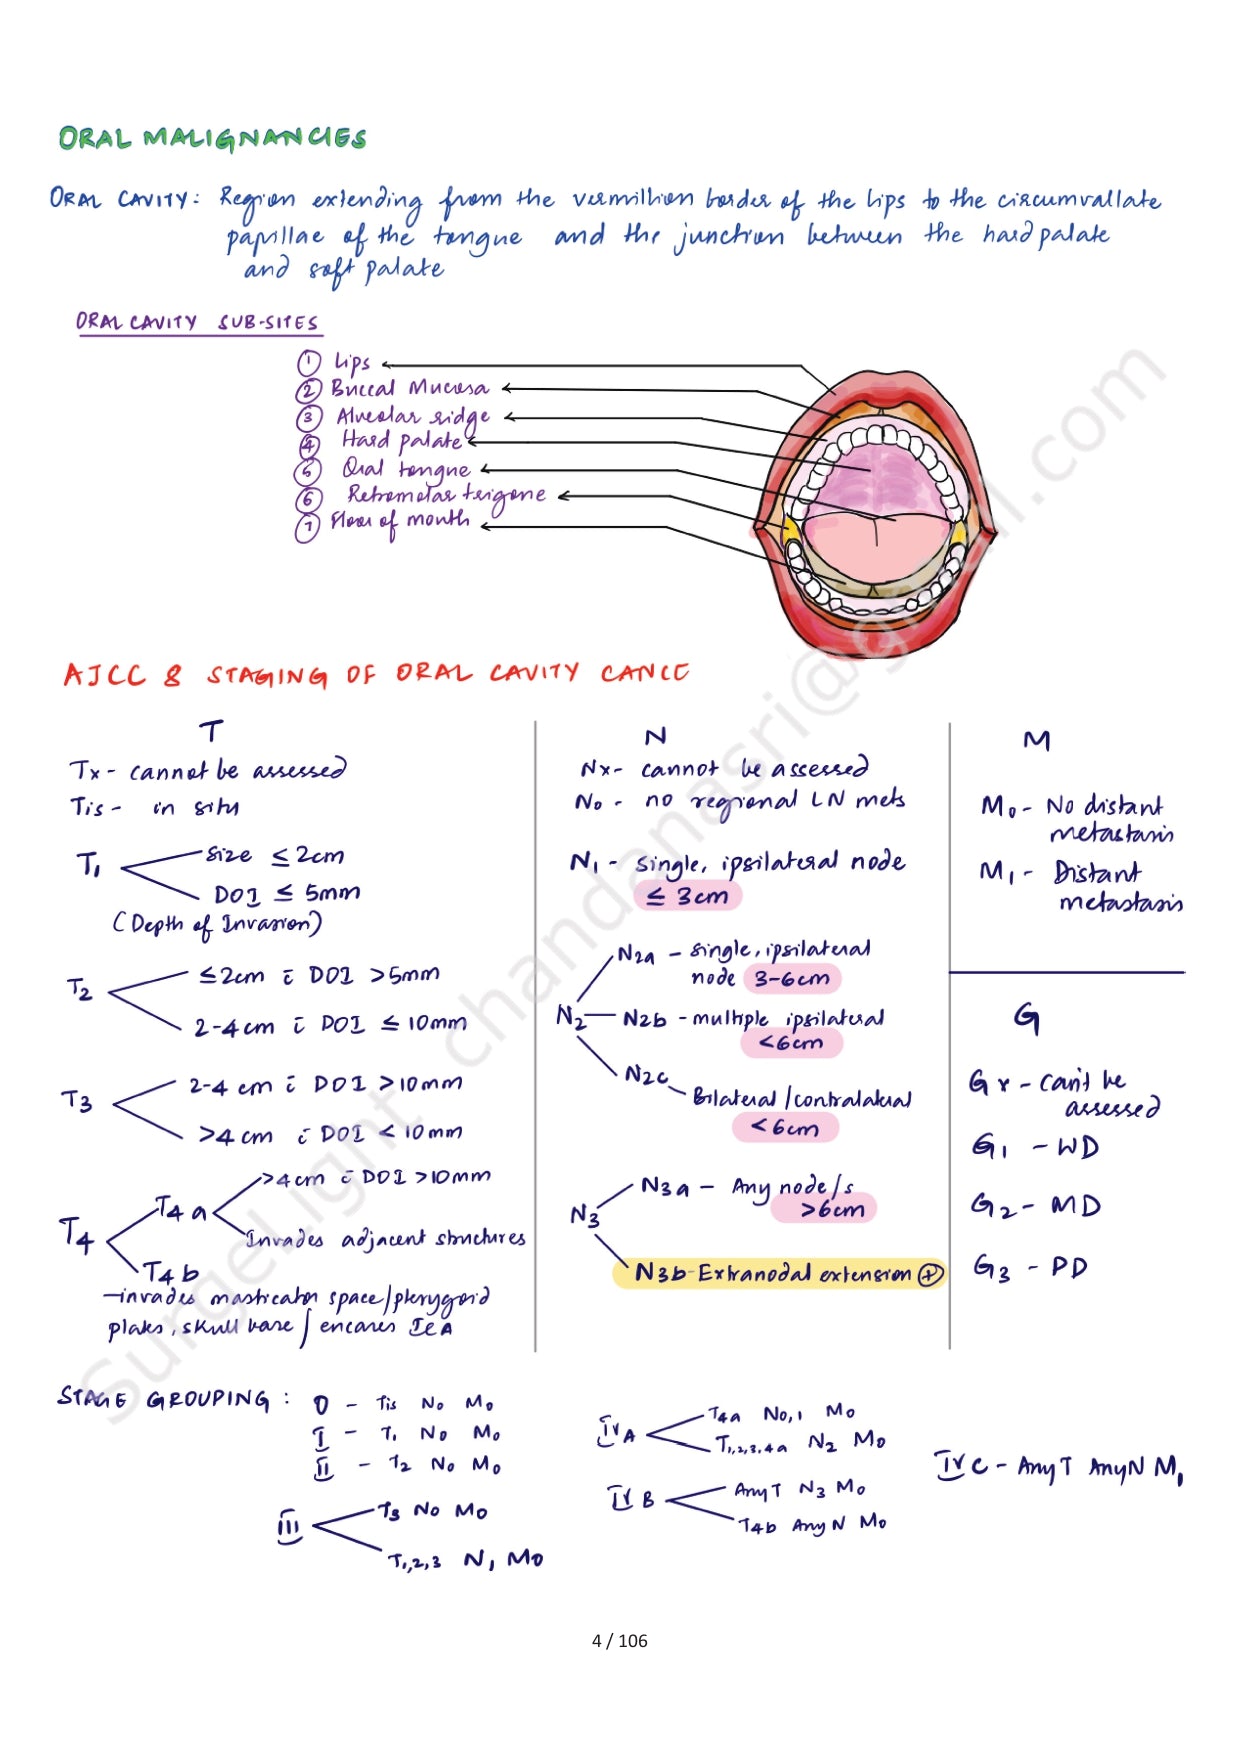 ORAL MALIGNANCIES
ORAL CAVITY: Region extending from the vermillion border of the lips to the circumvallate
papillae of the tongue and the junction between the hard palate
and soft palate
ORAL CAVITY SUB-SITES
① Lips
② Buccal Mucosa
③ Alveolar ridge
④ Hard palate
⑤ Oral tongue
⑥ Retromolar trigone
⑦ Floor of mouth
AJCC 8 STAGING OF ORAL CAVITY CANCE
T
Tx - cannot be assessed
Tis - in situ
T1
Size ≤ 2cm
DOI ≤ 5mm
(Depth of Invasion)
T2
≤2cm c̄ DOI >5mm
2-4cm c̄ DOI ≤ 10mm
T3
2-4 cm c̄ DOI >10mm
>4cm c̄ DOI < 10mm
T4
T4a
>4cm c̄ DOI >10mm
Invades adjacent structures
T4b
-invades masticator space/pterygoid
plates, skull base/ encases ICA
N
Nx- cannot be assessed
N0 - no regional LN mets
N1 - Single, ipsilateral node
≤ 3cm
N2
N2a - single, ipsilateral
node 3-6cm
N2b - multiple ipsilateral
<6cm
N2c
Bilateral/contralateral
<6cm
N3
N3a - Any node/s
>6cm
N3b-Extranodal extension ⊕
M
M0 - No distant
metastasis
M1 - Distant
metastasis
G
Gx - Can't be
assessed
G1 - WD
G2 - MD
G3 - PD
STAGE GROUPING:
0 - Tis N0 M0
I - T1 N0 M0
II - T2 N0 M0
III
T3 N0 M0
T1,2,3 N1 M0
IVA
T4a N0,1 M0
T1,2,3,4a N2 M0
IVB
Any T N3 M0
T4b Any N M0
IVC - Any T Any N M1
SurgeLight chandanasri@gmail.com
4 / 106